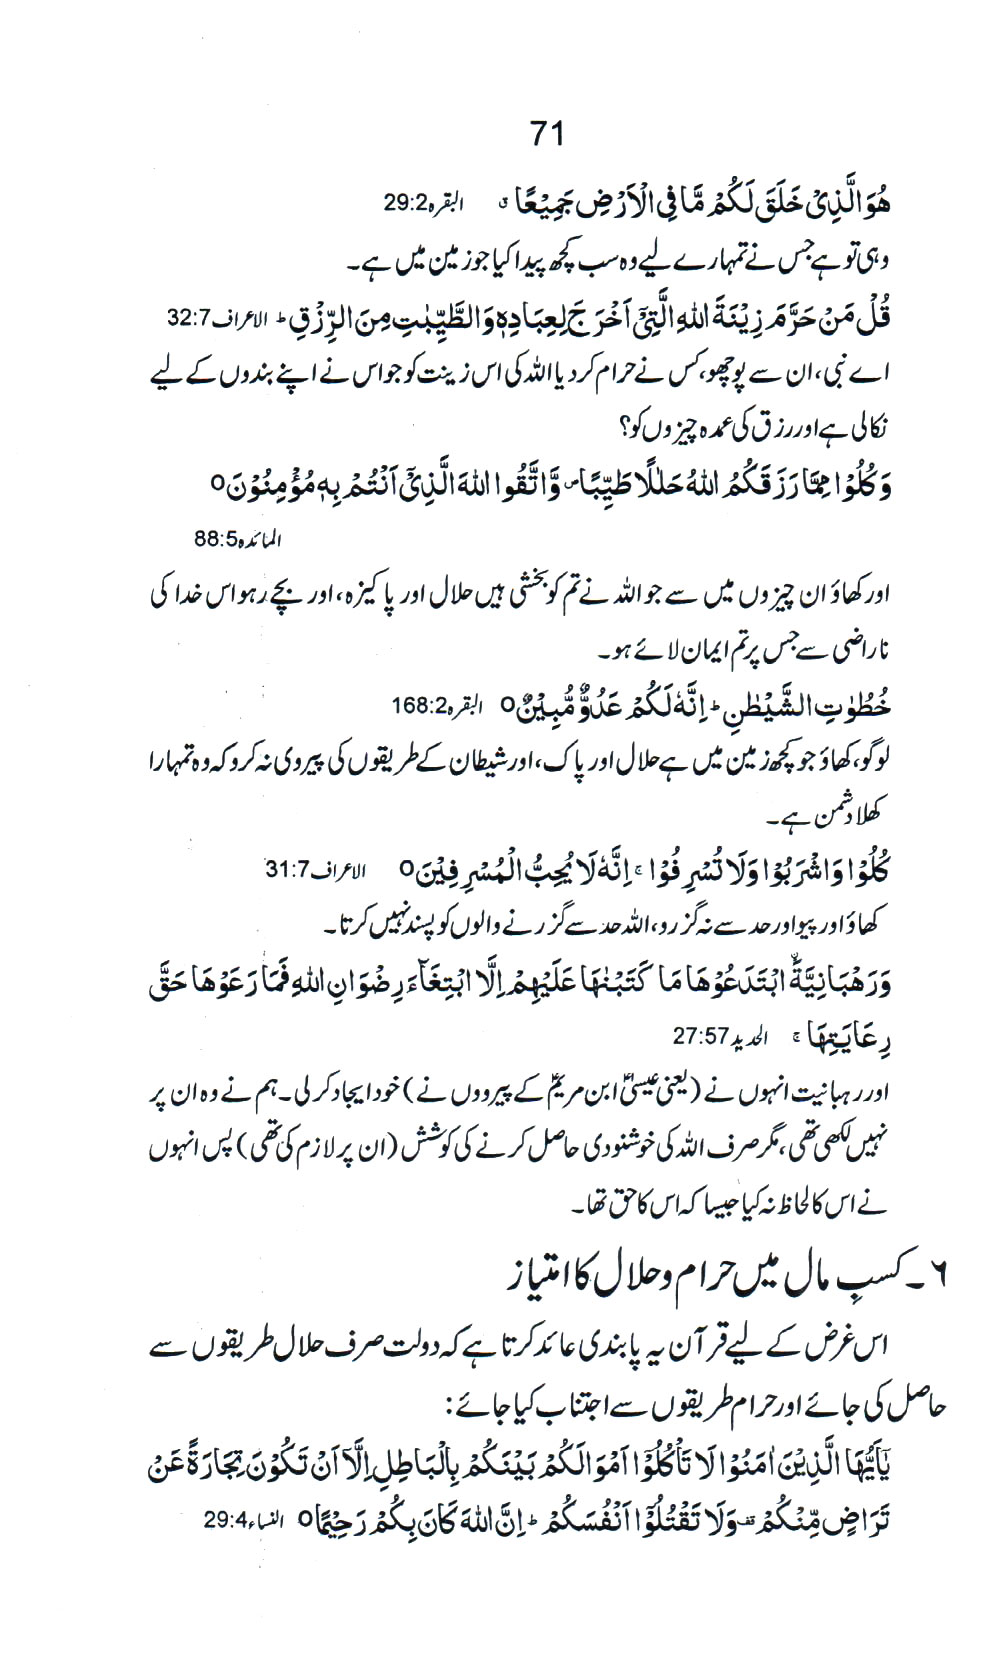 71
هُوَ الَّذِیْ خَلَقَ لَکُمْ مَّا فِی الْاَرْضِ جَمِیْعًا ق البقرہ 29:2
وہی تو ہے جس نے تمہارے لیے وہ سب کچھ پیدا کیا جو زمین میں ہے۔
قُلْ مَنْ حَرَّمَ زِیْنَۃَ اللہِ الَّتِیْٓ اَخْرَجَ لِعِبَادِہٖ وَالطَّیِّبٰتِ مِنَ الرِّزْقِ ؕ الاعراف 32:7
اے نبی، ان سے پوچھو، کس نے حرام کر دیا اللہ کی اس زینت کو جو اس نے اپنے بندوں کے لیے
نکالی ہے اور رزق کی عمدہ چیزوں کو؟
وَکُلُوْا مِمَّا رَزَقَکُمُ اللہُ حَلٰلًا طَیِّبًا ص وَّاتَّقُوا اللہَ الَّذِیْٓ اَنْتُمْ بِہٖ مُؤْمِنُوْنَ O
المائدہ 88:5
اور کھاؤ ان چیزوں میں سے جو اللہ نے تم کو بخشی ہیں حلال اور پاکیزہ، اور بچے رہو اس خدا کی
ناراضی سے جس پر تم ایمان لائے ہو۔
خُطُوٰتِ الشَّیْطٰنِ ؕ اِنَّہٗ لَکُمْ عَدُوٌّ مُّبِیْنٌ O البقرہ 168:2
لوگو، کھاؤ جو کچھ زمین میں ہے حلال اور پاک، اور شیطان کے طریقوں کی پیروی نہ کرو کہ وہ تمہارا
کھلا دشمن ہے۔
کُلُوْا وَاشْرَبُوْا وَلَا تُسْرِفُوْا ۚ اِنَّہٗ لَا یُحِبُّ الْمُسْرِفِیْنَ O الاعراف 31:7
کھاؤ اور پیو اور حد سے نہ گزرو، اللہ حد سے گزرنے والوں کو پسند نہیں کرتا۔
وَرَھْبَانِیَّۃَۨ ابْتَدَعُوْھَا مَا کَتَبْنٰھَا عَلَیْھِمْ اِلَّا ابْتِغَآءَ رِضْوَانِ اللہِ فَمَا رَعَوْھَا حَقَّ
رِعَایَتِھَا ۚ الحدید 27:57
اور رہبانیت انہوں نے (یعنی عیسیٰؑ ابن مریمؑ کے پیرووں نے) خود ایجاد کر لی۔ ہم نے وہ ان پر
نہیں لکھی تھی، مگر صرف اللہ کی خوشنودی حاصل کرنے کی کوشش (ان پر لازم کی تھی) پس انہوں
نے اس کا لحاظ نہ کیا جیسا کہ اس کا حق تھا۔
۶۔ کسبِ مال میں حرام و حلال کا امتیاز
اس غرض کے لیے قرآن یہ پابندی عائد کرتا ہے کہ دولت صرف حلال طریقوں سے
حاصل کی جائے اور حرام طریقوں سے اجتناب کیا جائے:
یٰٓاَیُّھَا الَّذِیْنَ اٰمَنُوْا لَا تَاْکُلُوْٓا اَمْوَالَکُمْ بَیْنَکُمْ بِالْبَاطِلِ اِلَّآ اَنْ تَکُوْنَ تِجَارَۃً عَنْ
تَرَاضٍ مِّنْکُمْ قف وَلَا تَقْتُلُوْٓا اَنْفُسَکُمْ ؕ اِنَّ اللہَ کَانَ بِکُمْ رَحِیْمًا O النساء 29:4